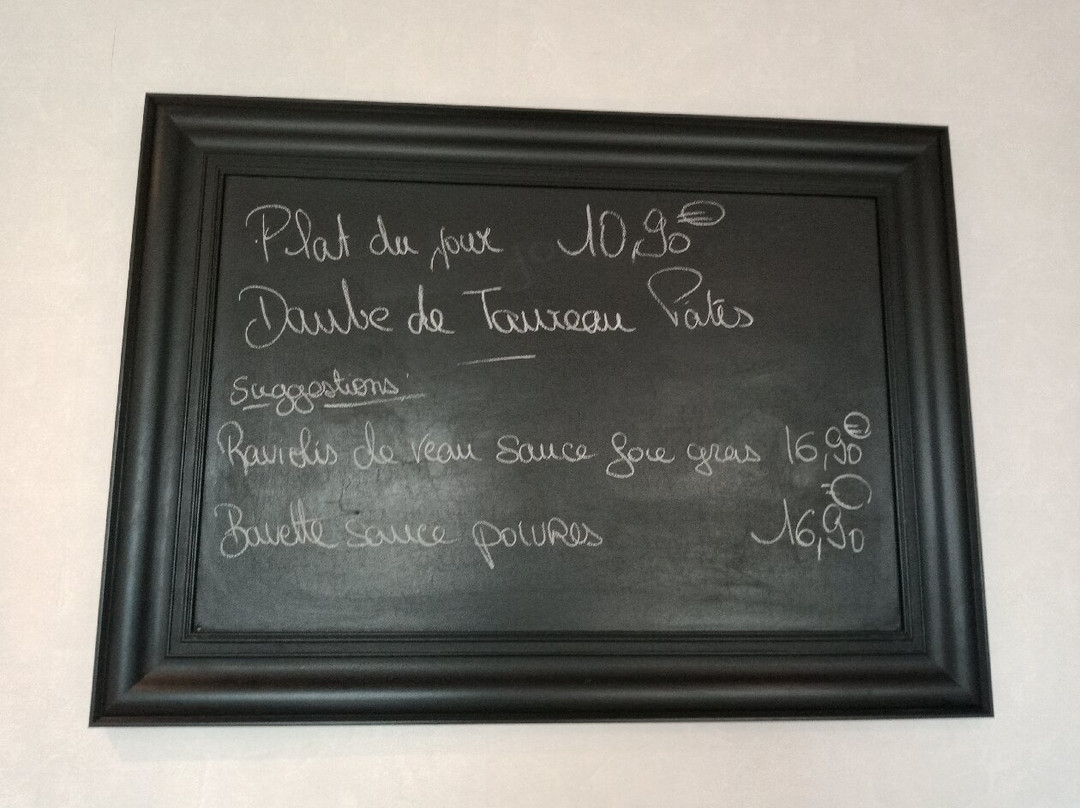 Plat du jour 10,90€
Daube de Taureau Pâtes
Suggestions:
Raviolis de veau sauce foie gras 16,90€
Bavette sauce poivres 16,90€